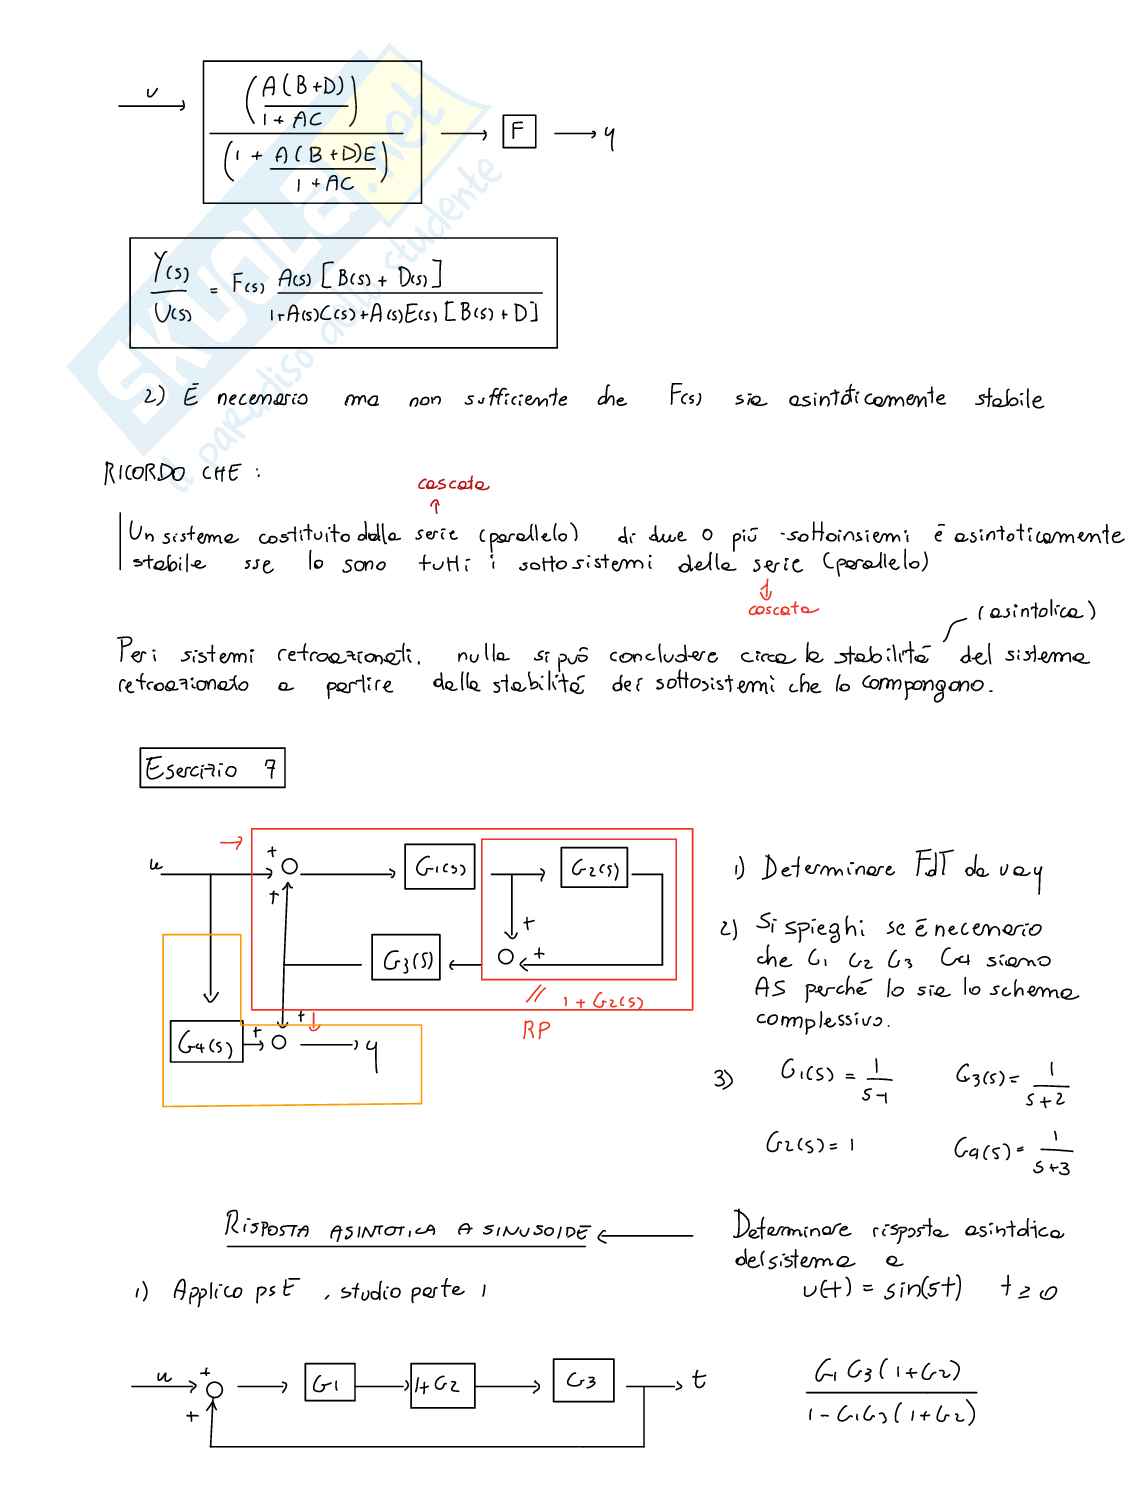 u
( A(B+D) / 1+AC )
( 1 + A(B+D)E / 1+AC )
F
y
Y(s) / U(s) = F(s) A(s) [B(s) + D(s)] / 1+A(s)C(s)+A(s)E(s) [B(s)+D]
2) È necenario ma non sufficiente che F(s) sia asintoticamente stabile
RICORDO CHE :
cascata
Un sisteme costituito dalla serie (parallelo) di due o più sottoinsiemi è asintoticamente
stabile sse lo sono tutti i sottosistemi della serie (parallelo)
cascata
(asintotica)
Per i sistemi retroazionati, nulla si può concludere circa la stabilità del sistema
retroazionato a partire dalla stabilità dei sottosistemi che lo compongono.
Esercizio 7
u
+
+
G1(s)
G2(s)
+
+
G3(s)
// 1+G2(s)
RP
G4(s)
+
+
y
1) Determinare FdT da u a y
2) Si spieghi se è necenario
che G1 G2 G3 G4 siano
AS perché lo sia lo schema
complessivo.
3) G1(s) = 1 / s-1 G3(s) = 1 / s+2
G2(s) = 1 G4(s) = 1 / s+3
RISPOSTA ASINTOTICA A SINUSOIDE
Determinare risposta asintotica
del sistema a
u(t) = sin(5t) t ≥ 0
1) Applico psE , studio parte 1
u
+
+
G1
1+G2
G3
t
G1 G3 (1+G2) / 1 - G1G3 (1+G2)
SKUOLA.net
il paradiso dello studente